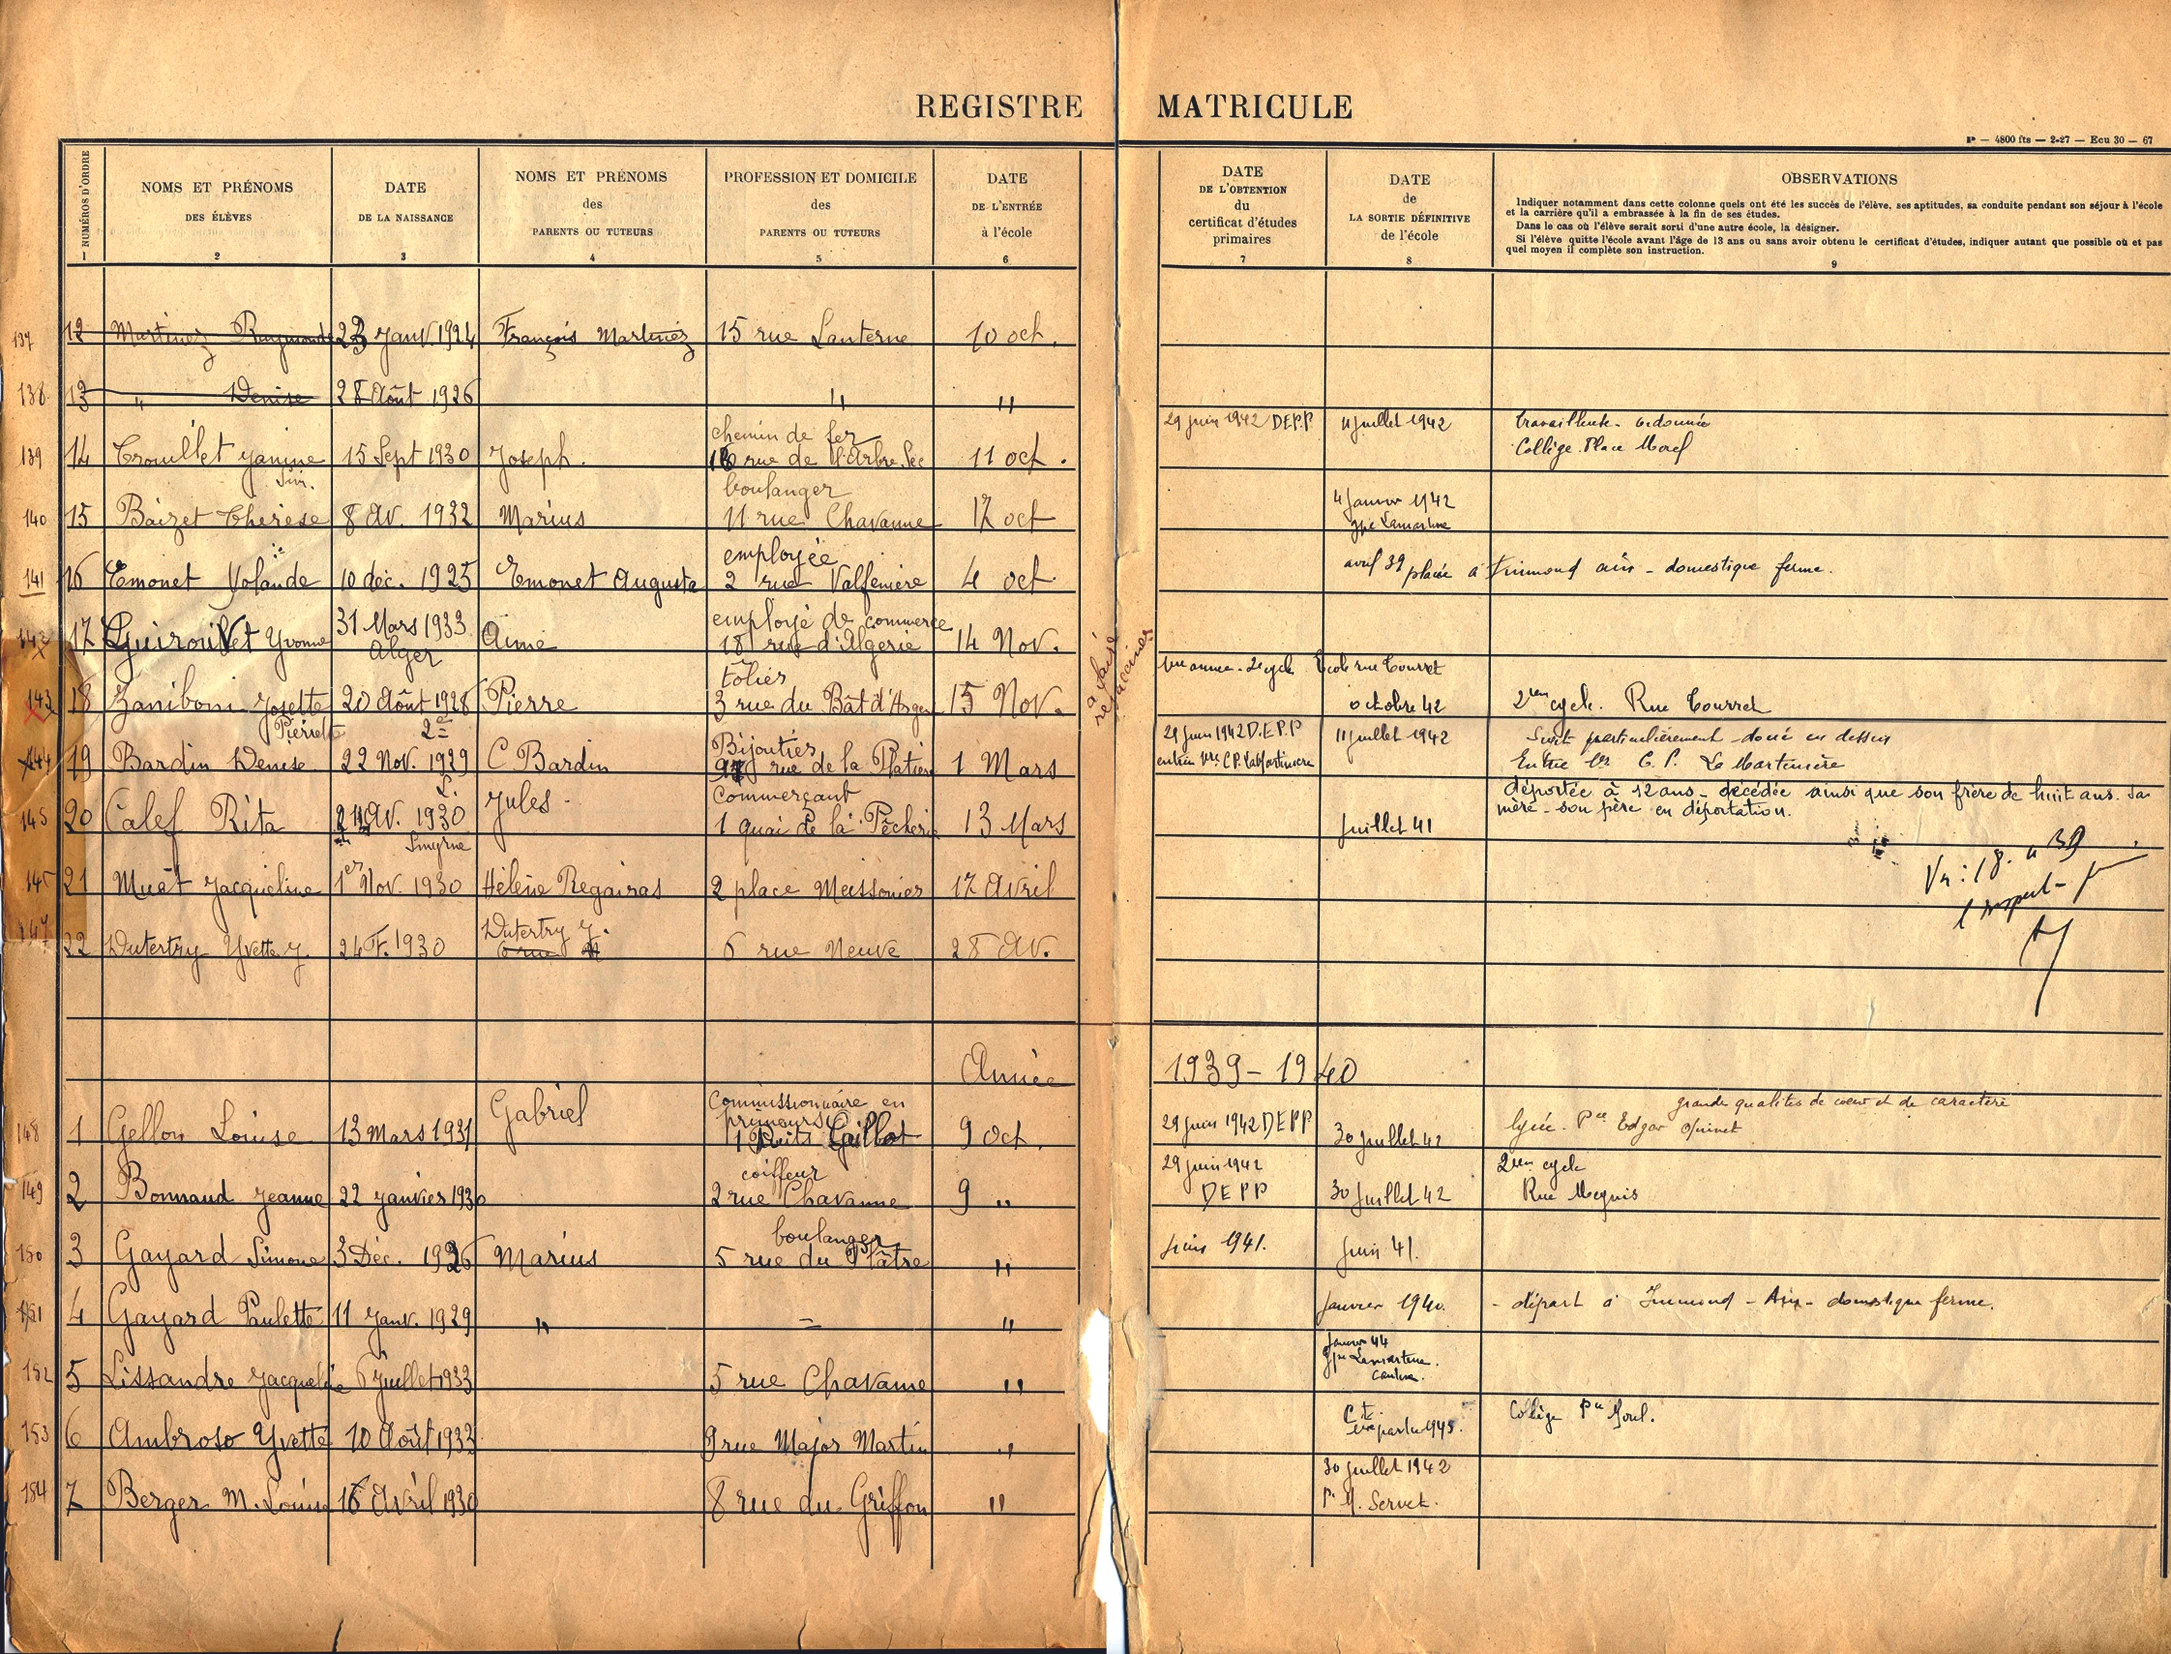 REGISTRE MATRICULE
4800 fts — 2-27 — Ecu 30 — 67
NUMÉROS D'ORDRE
1
NOMS ET PRÉNOMS
DES ÉLÈVES
2
DATE
DE LA NAISSANCE
3
NOMS ET PRÉNOMS
des
PARENTS OU TUTEURS
4
PROFESSION ET DOMICILE
des
PARENTS OU TUTEURS
5
DATE
DE L'ENTRÉE
à l'école
6
DATE
DE L'OBTENTION
du
certificat d'études
primaires
7
DATE
de
LA SORTIE DÉFINITIVE
de l'école
8
OBSERVATIONS
Indiquer notamment dans cette colonne quels ont été les succès de l'élève, ses aptitudes, sa conduite pendant son séjour à l'école
et la carrière qu'il a embrassée à la fin de ses études.
Dans le cas où l'élève serait sorti d'une autre école, la désigner.
Si l'élève quitte l'école avant l'âge de 13 ans ou sans avoir obtenu le certificat d'études, indiquer autant que possible où et par
quel moyen il complète son instruction.
9
137 12 Martinez Raymonde 23 Janv. 1924 François Martinez 15 rue Lanterne 10 oct.
138 13 " Denise 28 Août 1926 " "
139 14 Trouillet Janine 15 Sept 1930 Joseph. chemin de fer
16 rue de l'Arbre Sec 11 oct. 29 juin 1942 DEPP 11 juillet 1942 travailleuse - ordonnée
Collège Place Morel
140 15 Baizet Thérèse 8 Av. 1932 Marius boulanger
11 rue Chavanne 17 oct 4 Janvier 1942
gpe Lamartine
141 16 Emonet Yolande 10 déc. 1925 Emonet Augusta employée
2 rue Valfenière 4 oct avril 39 placée à domestique ferme.
142 17 Yvonne 31 Mars 1933
Alger Aimé employé de commerce
18 rue d'Algerie 14 Nov.
à laisser
143 18 Zaniboni Josette
Pierrette 20 Août 1928 Pierre Tôlier
3 rue du Bât d'Argent 15 Nov. 1ère année - 2e cycle Ecole rue Tourret
octobre 42 2em cycle. Rue Tourret
144 19 Bardin Denise 22 Nov. 1929 C Bardin Bijoutier
rue de la Platière 1 Mars 29 juin 1942 D.E.P.P
entrée 1ère C.P. La Martinière 11 juillet 1942 particulièrement douée en dessin
Entrée 1ère C. P. La Martinière
145 20 Calef Rita Av. 1930
Smyrne Jules - Commerçant
1 quai de la Pêcherie 13 Mars Juillet 41 déportée à 12 ans - décédée ainsi que son frère de huit ans. Sa
mère - son père en déportation.
21 Muet Jacqueline 1er Nov. 1930 Hélène Regairas 2 place Meissonier 17 Avril
Vu: 18. 39
147 22 Dutertry Yvette J. 24 F. 1930 Dutertry J. 6 rue Neuve 28 Av.
Année 1939 - 1940
148 1 Gellon Louise 13 Mars 1931 Gabriel Commissionnaire en
primeurs
1 Puits Gaillot 9 oct. 29 juin 1942 DEPP 30 juillet 42 grande qualités de coeur et de caractère
lycée. Pce Edgar Quinet
149 2 Bonnaud Jeanne 22 janvier 1930 coiffeur
2 rue Chavanne 9 " 29 juin 1942
DEPP 30 Juillet 42 2em cycle
Rue
150 3 Gayard Simone 3 Déc. 1926 Marius boulanger
5 rue du Plâtre " Juin 1941. Juin 41.
151 4 Gayard Paulette 11 janv. 1929 " = " Janvier 1940. - départ à - Ain - domestique ferme.
152 5 Lissandre Jacqueline 6 Juillet 1933 5 rue Chavanne " Janvier 44
gpe Lamartine
cantine.
153 6 Ambroso Yvette 10 Août 1933 9 rue Major Martin " Collège Pce Morel.
154 7 Berger M. Louise 16 Avril 1930 8 rue du Griffon " 30 juillet 1942
P. M. Servet.